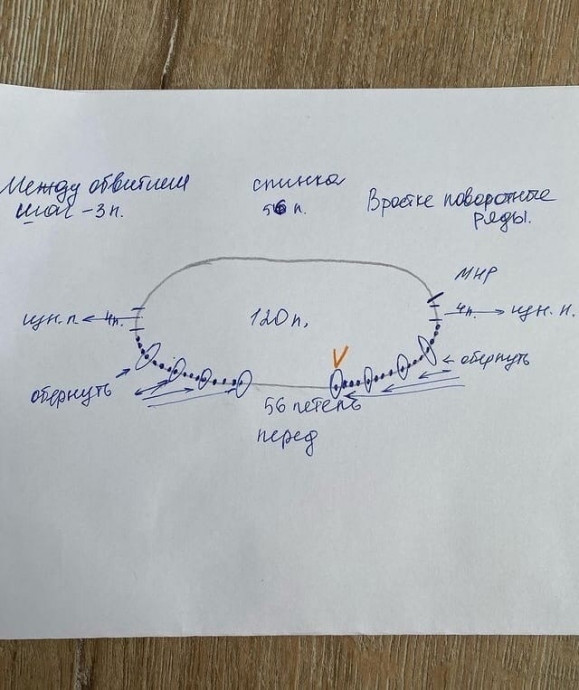 Между обвитием
шаг - 3 п.
спинка
56 п.
В ростке поворотные
ряды.
МНР
изн. п. 4п.
120 п.
4п. изн. п.
обернуть
обернуть
56 петель
перед